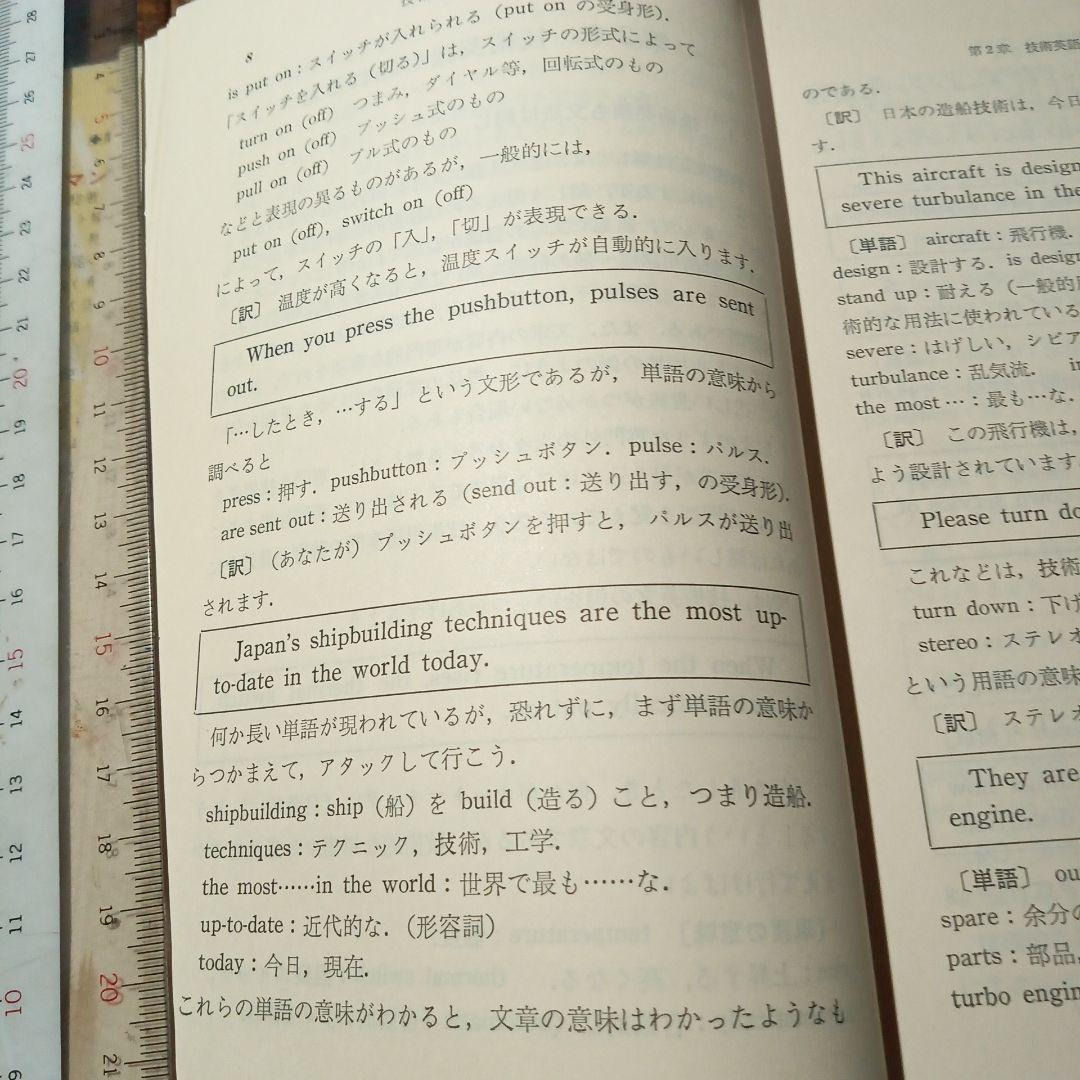 8
is put on：スイッチが入れられる（put on の受身形）．
「スイッチを入れる（切る）」は，スイッチの形式によって
turn on (off)　つまみ，ダイヤル等，回転式のもの
push on (off)　プッシュ式のもの
pull on (off)　プル式のもの
などと表現の異るものがあるが，一般的には，
put on (off), switch on (off)
によって，スイッチの「入」，「切」が表現できる．
〔訳〕　温度が高くなると，温度スイッチが自動的に入ります．
When you press the pushbutton, pulses are sent
out.
「…したとき，…する」という文形であるが，単語の意味から
調べると
press：押す．pushbutton：プッシュボタン．pulse：パルス．
are sent out：送り出される（send out：送り出す，の受身形）．
〔訳〕（あなたが）プッシュボタンを押すと，パルスが送り出
されます．
Japan's shipbuilding techniques are the most up-
to-date in the world today.
何か長い単語が現われているが，恐れずに，まず単語の意味か
らつかまえて，アタックして行こう．
shipbuilding：ship（船）を build（造る）こと，つまり造船．
techniques：テクニック，技術，工学．
the most……in the world：世界で最も……な．
up-to-date：近代的な．（形容詞）
today：今日，現在．
これらの単語の意味がわかると，文章の意味はわかったようなも
第2章　技術英語
のである．
〔訳〕　日本の造船技術は，今日
す．
This aircraft is design
severe turbulance in the
〔単語〕　aircraft：飛行機．
design：設計する．is design
stand up：耐える（一般的
術的な用法に使われている
severe：はげしい，シビア
turbulance：乱気流．　in
the most …：最も…な．
〔訳〕　この飛行機は，
よう設計されています
Please turn do
これなどは，技術
turn down：下げ
stereo：ステレオ
という用語の意味
〔訳〕　ステレオ
They are
engine.
〔単語〕　ou
spare：余分の
parts：部品，
turbo engin
28
27
26
25
24
23
22
21
20
19
18
17
16
15
14
13
12
11
10
3
4
5
6
7
8
9
10
11
12
13
14
15
16
17
18
19
20
21